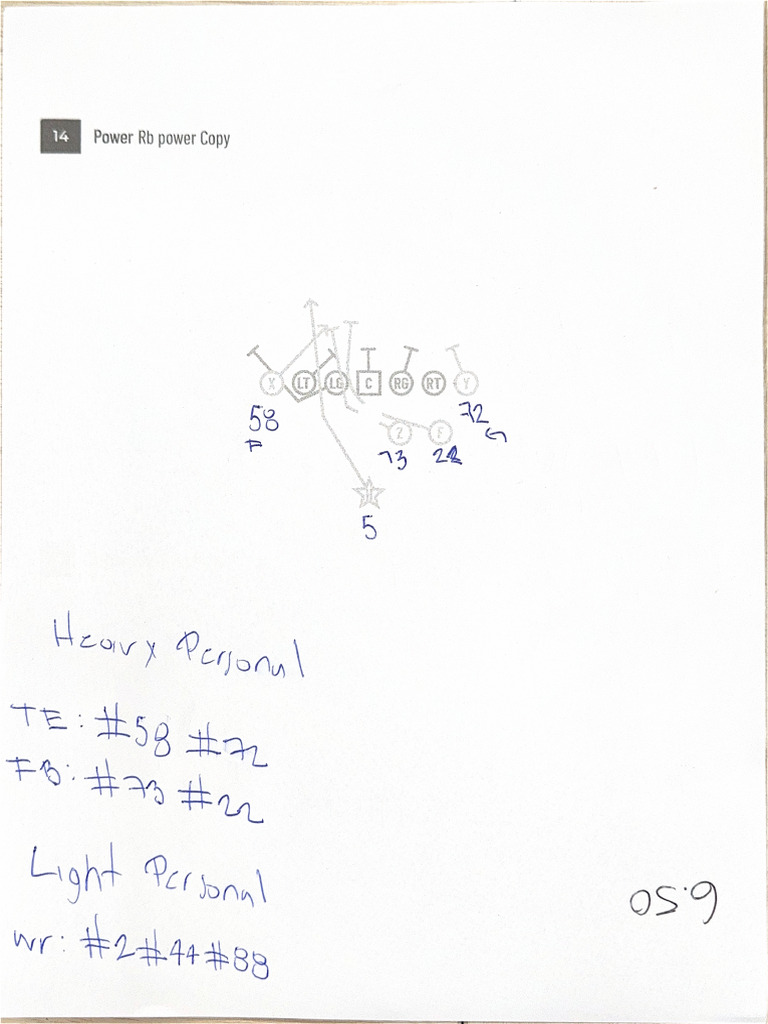 14 Power Rb power Copy
X LT LG C RG RT Y
58 72
F
Z F
73 22
5
Heavy Personal
TE: #58 #72
FB: #73 #22
Light Personal
6.50
wr: #2 #44 #88